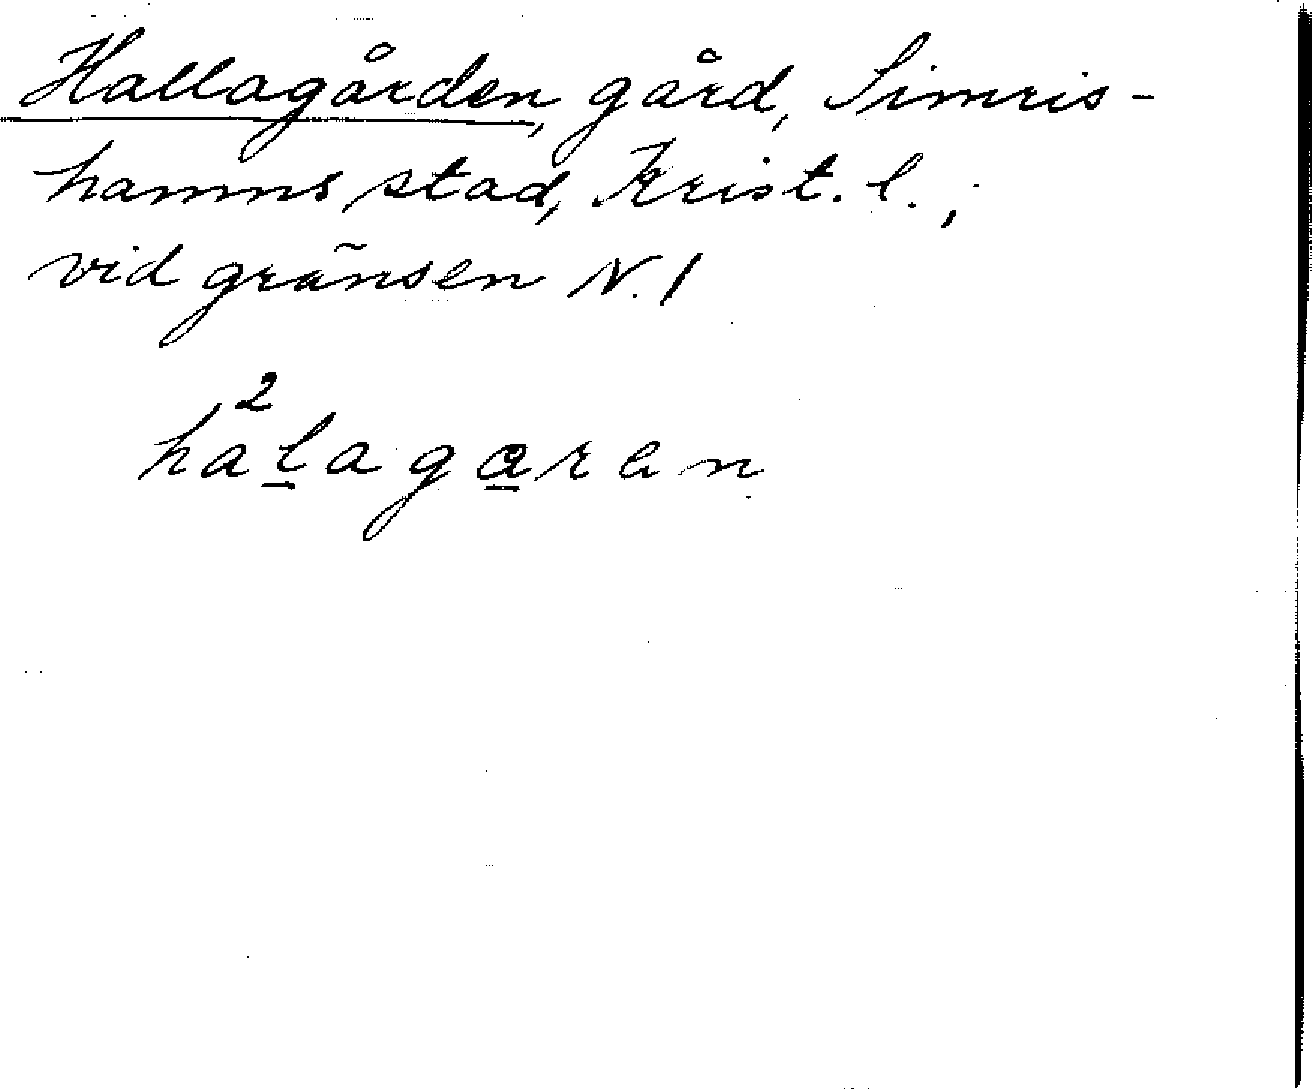 Hallagården, gård, Simris-
hamns stad, Krist. l.,
vid gränsen N. /
2
halagaren